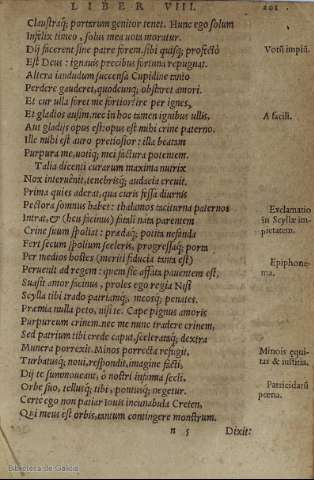 LIBER VIII. 201
Claustraq; portarum genitor tenet. Hunc ego solum
Infelix timeo, solus mea vota moratur.
Dij facerent sine patre forem. sibi quisq; profectò
Votū impiū.
Est Deus: ignauis precibus fortuna repugnat.
Altera iamdudum succensa Cupidine tanto
Perdere gauderet, quodcunq; obstaret amori.
Et cur ulla foret me fortior? ire per ignes,
Et gladios ausim. nec in hoc tamen ignibus ullis,
A facili.
Aut gladijs opus est: opus est mihi crine paterno.
Ille mihi est auro pretiosior: illa beatam
Purpura me, uotiq; mei factura potentem.
Talia dicenti curarum maxima nutrix
Nox interuênit, tenebrisq; audacia creuit.
Prima quies aderat, qua curis fessa diurnis
Pectora somnus habet: thalamos taciturna paternos
Exclamatio
Intrat, & (heu facinus) fatali nata parentem
in Scyllæ im-
Crine suum spoliat: prædaq; potita nefanda
pietatem.
Fert secum spolium sceleris, progressaq; porta
Per medios hostes (meriti fiducia tanta est)
Epiphone-
Peruenit ad regem: quem sic affata pauentem est,
ma.
Suasit amor facinus, proles ego regia Nisi
Scylla tibi trado patriamq;, meosq; penates.
Præmia nulla peto, nisi te. Cape pignus amoris
Purpureum crinem. nec me nunc tradere crinem,
Sed patrium tibi crede caput. scelerataq; dextra
Munera porrexit. Minos porrecta refugit,
Minois equi-
Turbatusq; noui, respondit, imagine facti,
tas & iustitia.
Dij te summoueant, ô nostri infamia secli,
Orbe suo, tellusq; tibi, pontusq; negetur.
Patricidarū
Certe ego non patiar Iouis incunabula Creten,
pœna.
Qui meus est orbis, tantum contingere monstrum.
n 5 Dixit:
Biblioteca de Galicia